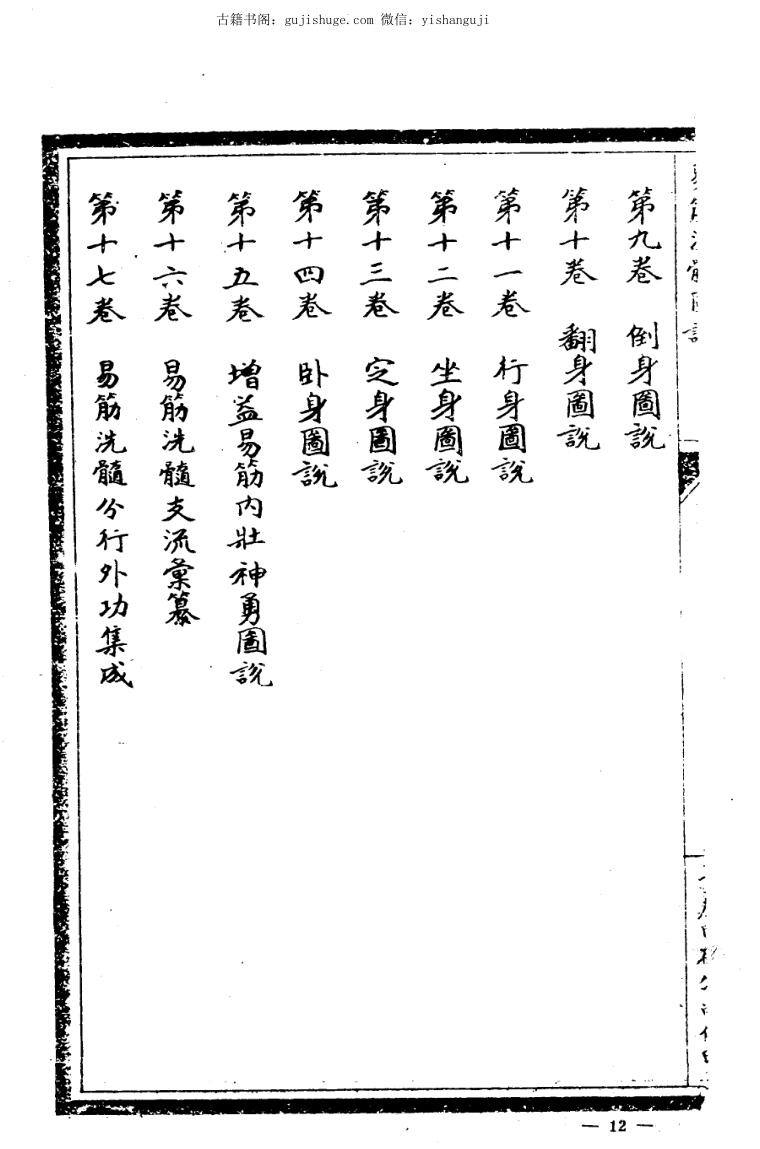 古籍书阁：gujishuge.com 微信：yishanguji
第九卷 倒身圖說
第十卷 翻身圖說
第十一卷 行身圖說
第十二卷 坐身圖說
第十三卷 定身圖說
第十四卷 卧身圖說
第十五卷 增益易筋內壯神勇圖說
第十六卷 易筋洗髓支流彙纂
第十七卷 易筋洗髓分行外功集成
— 12 —